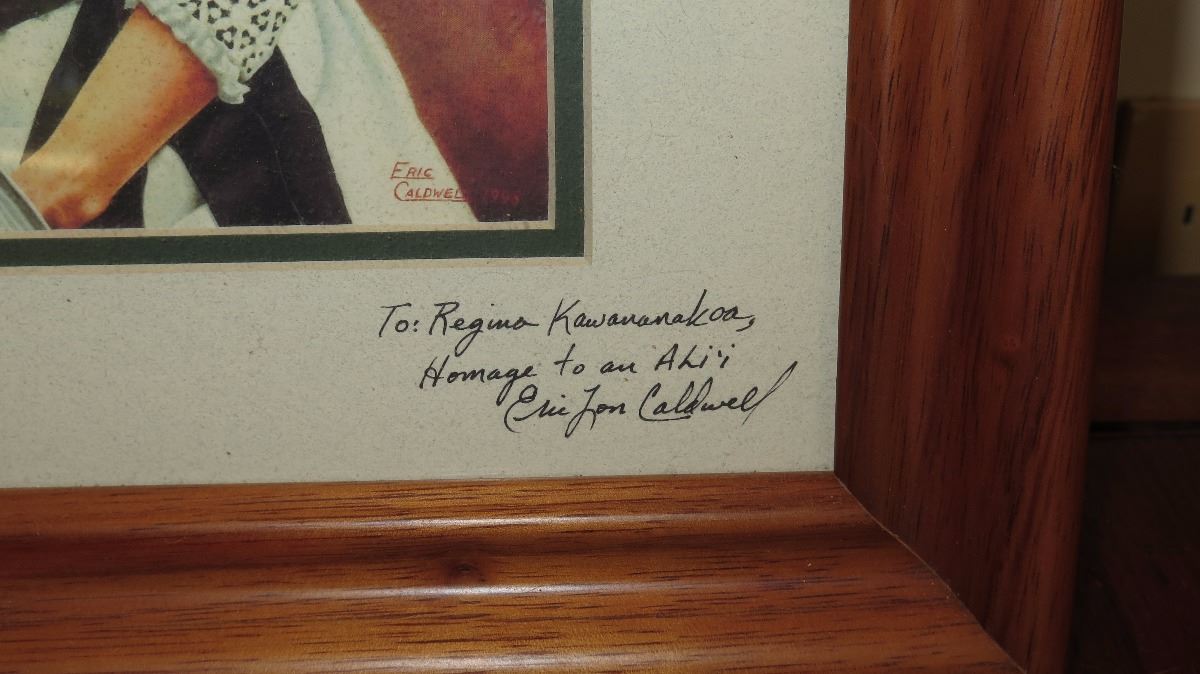 ERIC
CALDWELL
To: Regina Kawananakoa,
Homage to an Ali'i
Eric Jon Caldwell